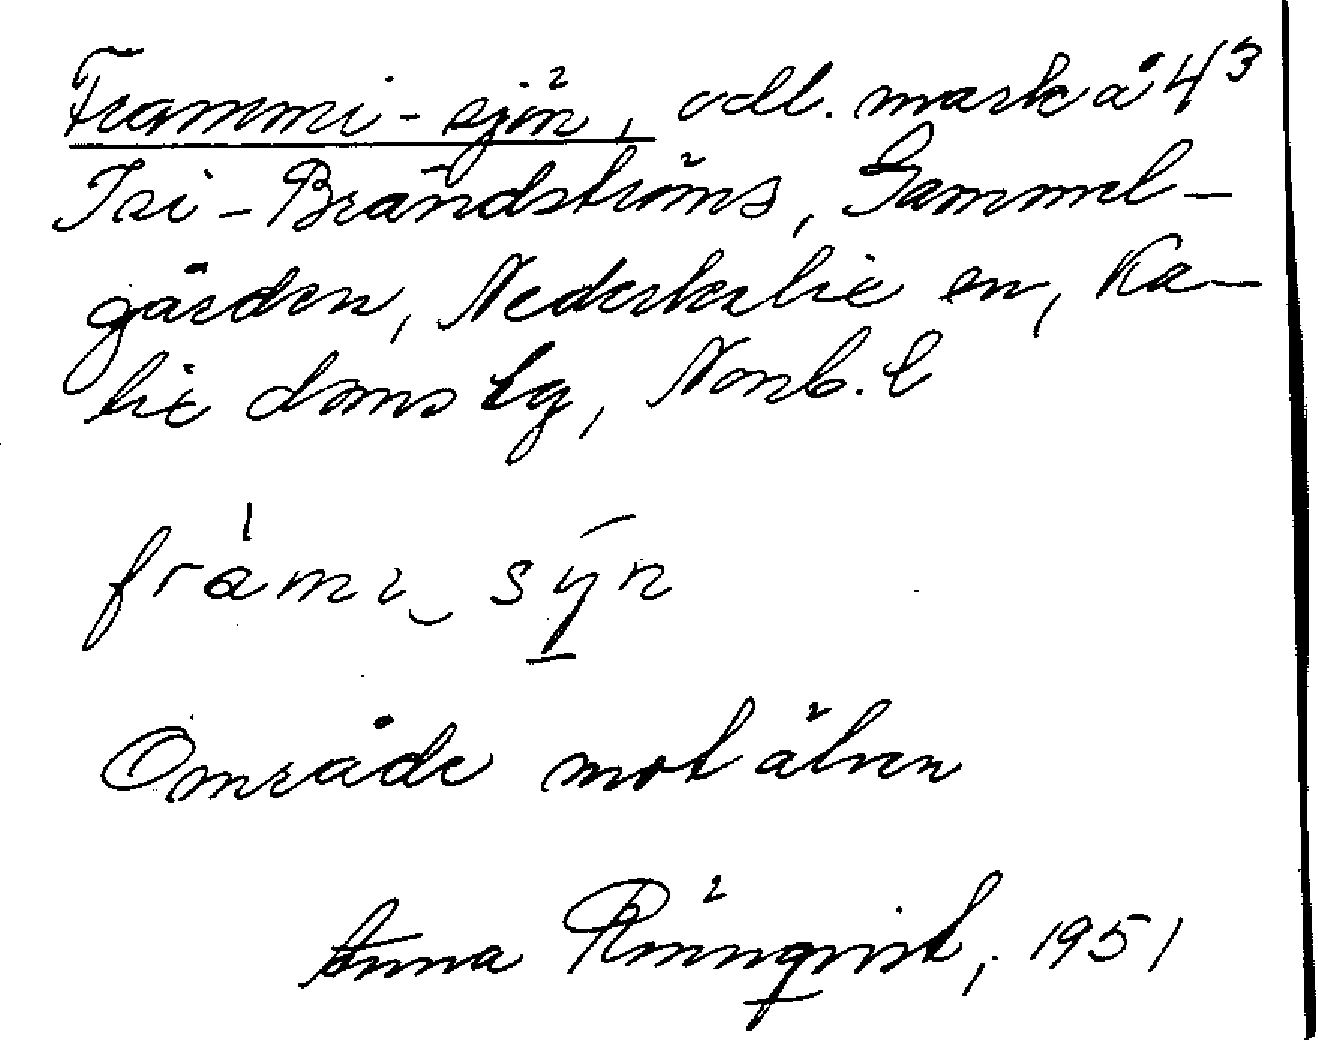 Frammi-sjön, odl. mark å 4³
Isi-Brändströms, Gammel-
gården, Nederkalix sn, Ka-
lix domslg, Norrb. l
frami sy̅n
Område mot älven
Anna Rönnqvist, 1951